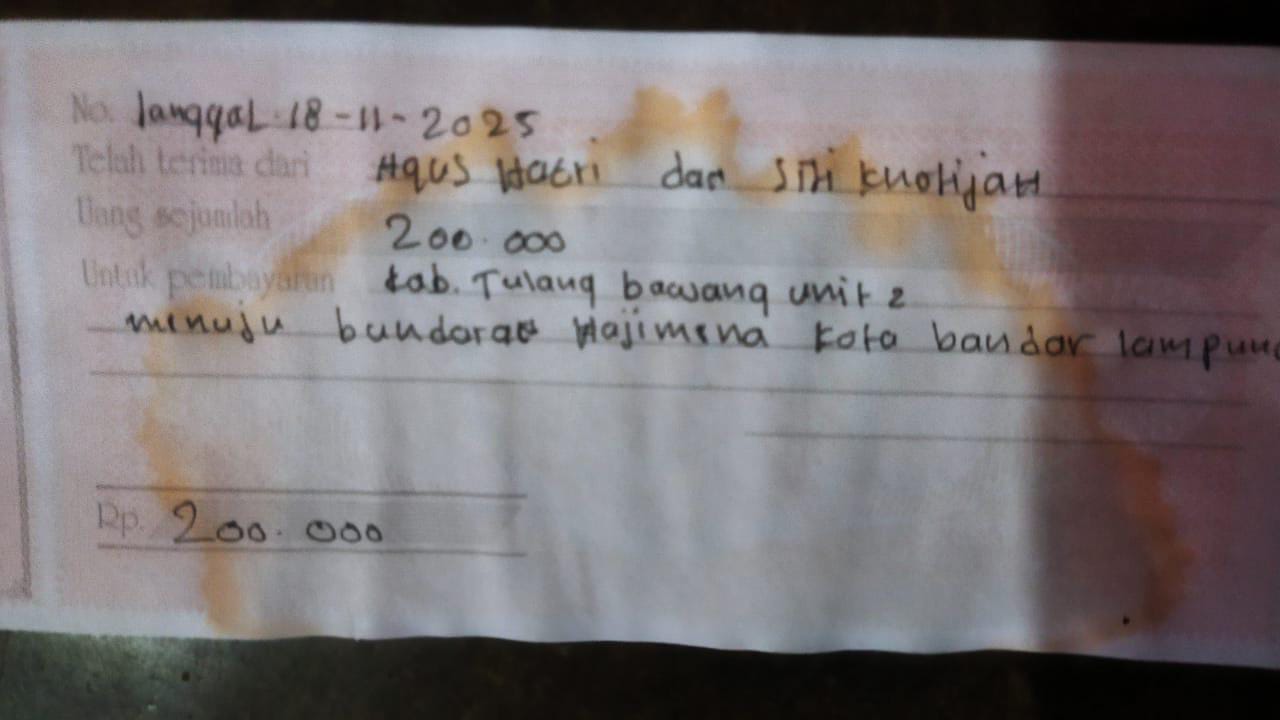 No. Tanggal. 18-11-2025
Telah terima dari Agus Hatri dan Siti Khotijah
Uang sejumlah 200.000
Untuk pembayaran kab. Tulang bawang unit 2
menuju bundaran Hajimena kota bandar lampung
Rp. 200.000